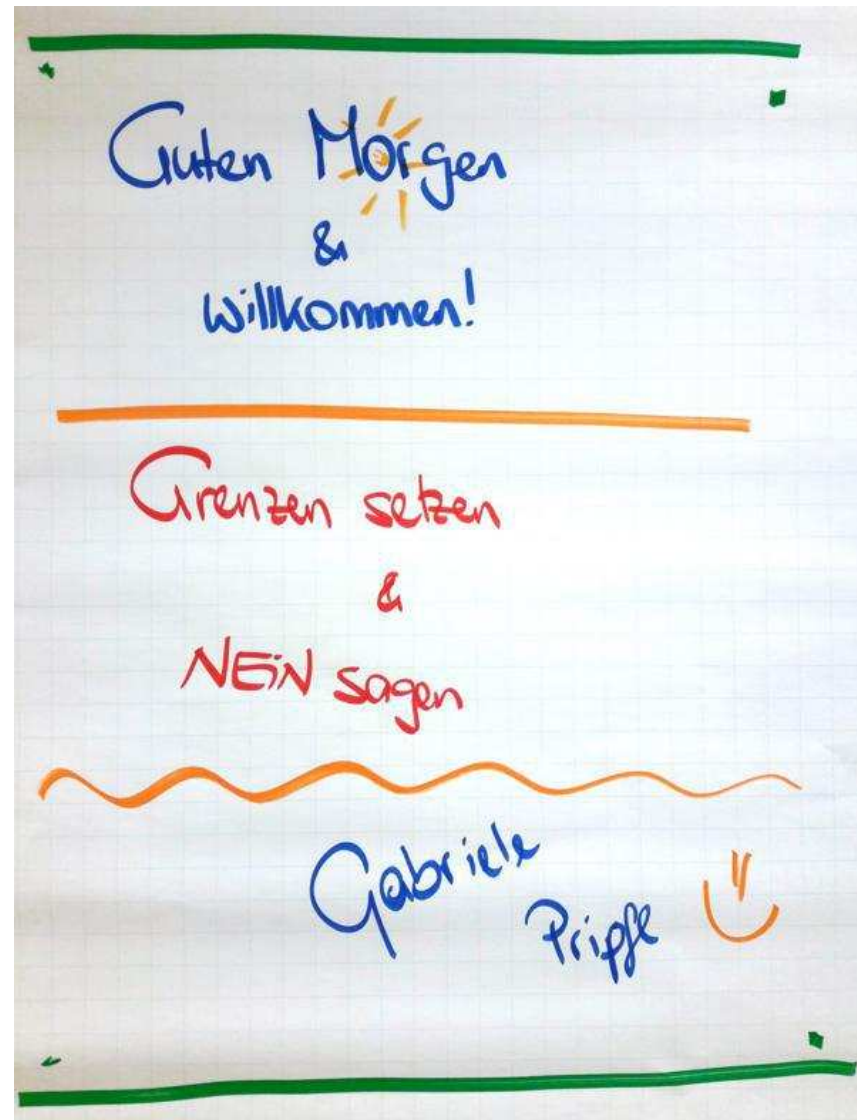 Guten Morgen
&
Willkommen!
Grenzen setzen
&
NEiN sagen
Gabriele
Pripfl